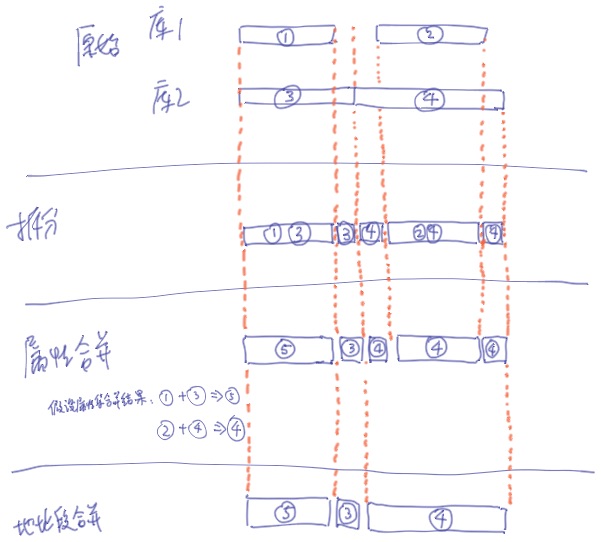 原始 库1 ① ②
库2 ③ ④
拆分 ① ③ ③ ④ ②④ ④
属性合并 ⑤ ③ ④ ④ ④
假设属性合并结果: ①+③⇒⑤
②+④⇒④
地址段合并 ⑤ ③ ④